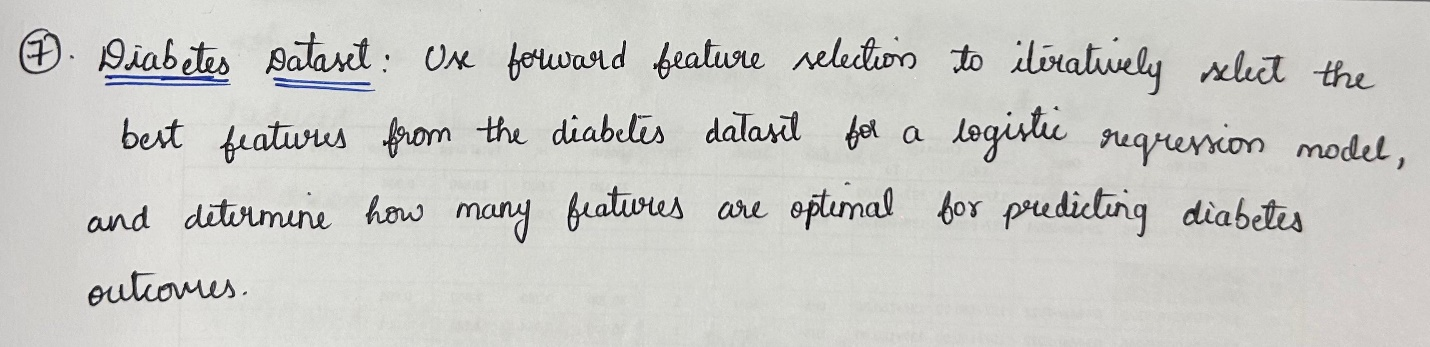 ⑦. Diabetes Dataset: Use forward feature selection to iteratively select the
best features from the diabetes dataset for a logistic regression model,
and determine how many features are optimal for predicting diabetes
outcomes.